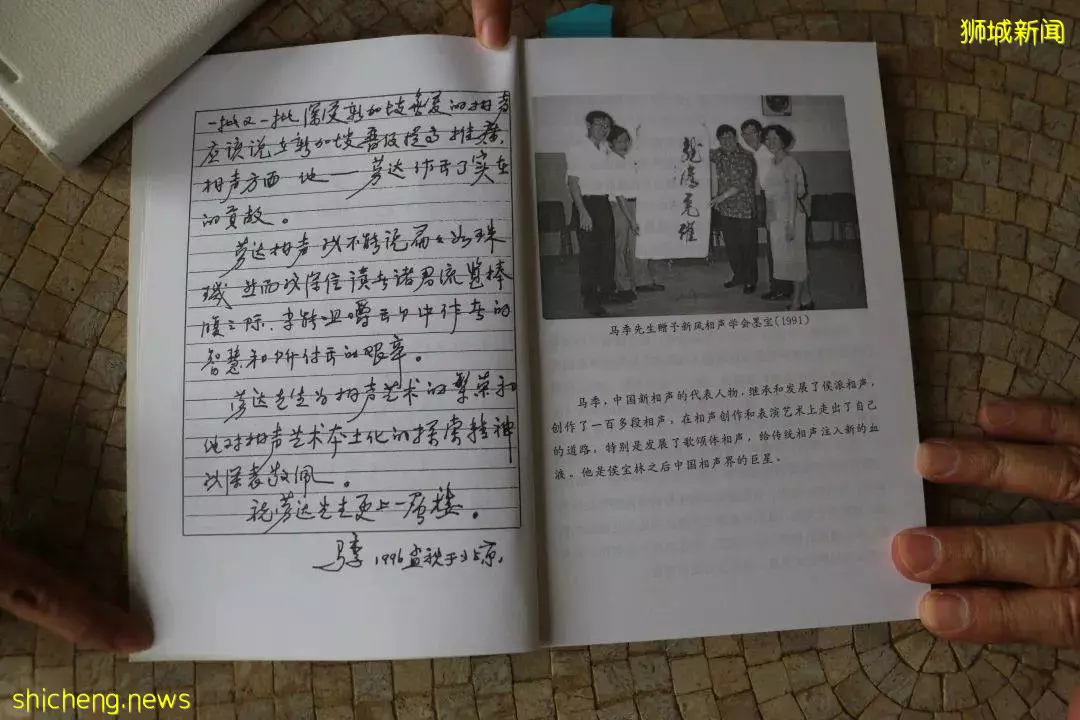 狮城新闻
一批又一批深受新加坡喜爱的相声
应该说在新加坡普及提高
相声方面他——劳达作出了实在
的贡献。
劳达相声我不能说篇篇珠
玑 然而我深信读者诸君浏览捧
腹之际、才能咀嚼出个中作者的
智慧和所付出的艰辛。
劳达先生为相声艺术的繁荣和
他对相声艺术本土化的探索精神
我深表敬佩。
祝劳达先生更上一层楼。
马季 1996孟秋于北京.
马季先生赠予新风相声学会墨宝(1991)
马季,中国新相声的代表人物,继承和发展了侯派相声,
创作了一百多段相声,在相声创作和表演艺术上走出了自己
的道路,特别是发展了歌颂体相声,给传统相声注入新的血
液。他是侯宝林之后中国相声界的巨星。
shicheng.news